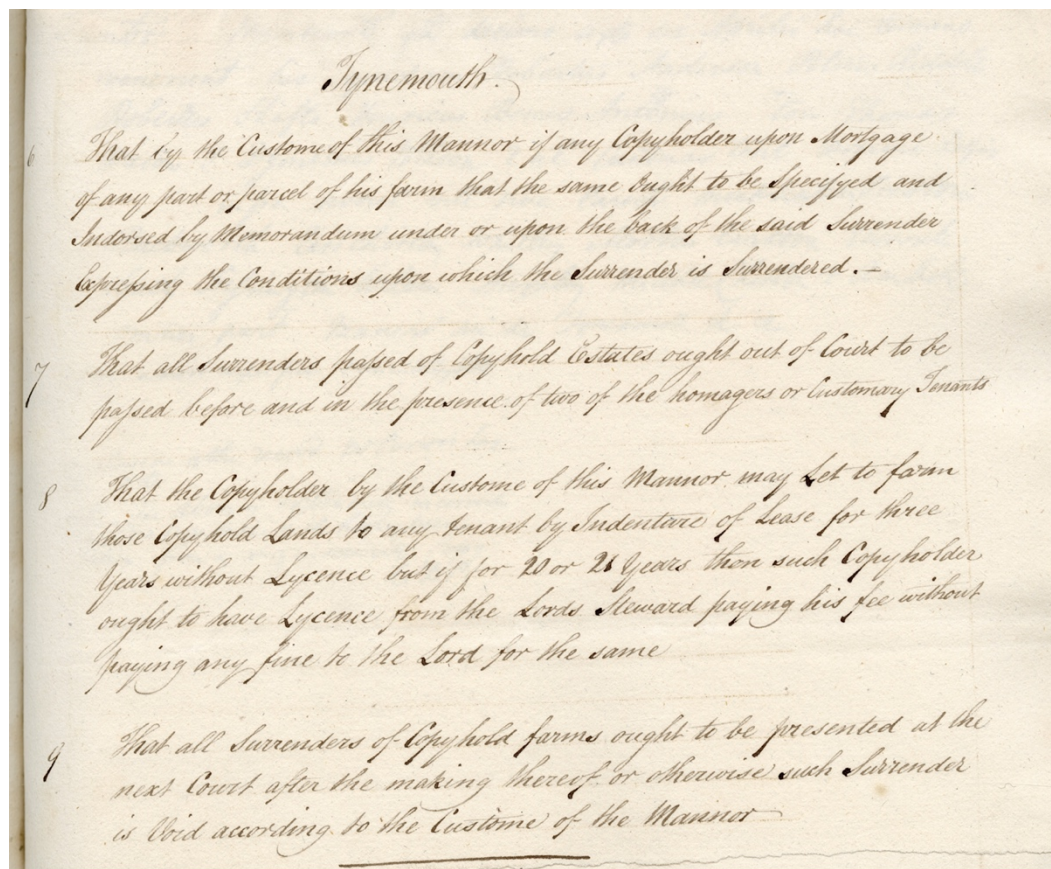 Tynemouth.
6 That by the Custome of this Mannor if any Copyholder upon Mortgage
of any part or parcel of his farm that the same Ought to be Specifyed and
Indorsed by Memorandum under or upon the back of the said Surrender
Expressing the Conditions upon which the Surrender is Surrendered. —
7 That all Surrenders passed of Copyhold Estates ought out of Court to be
passed before and in the presence of two of the homagers or Customary Tenants
8 That the Copyholder by the Custome of this Mannor may Let to farm
those Copyhold Lands to any tenant by Indenture of Lease for three
Years without Lycence but if for 20 or 21 Years then such Copyholder
ought to have Lycence from the Lords Steward paying his fee without
paying any fine to the Lord for the same
9 That all Surrenders of Copyhold farms ought to be presented at the
next Court after the making thereof or otherwise such Surrender
is Void according to the Custome of the Mannor